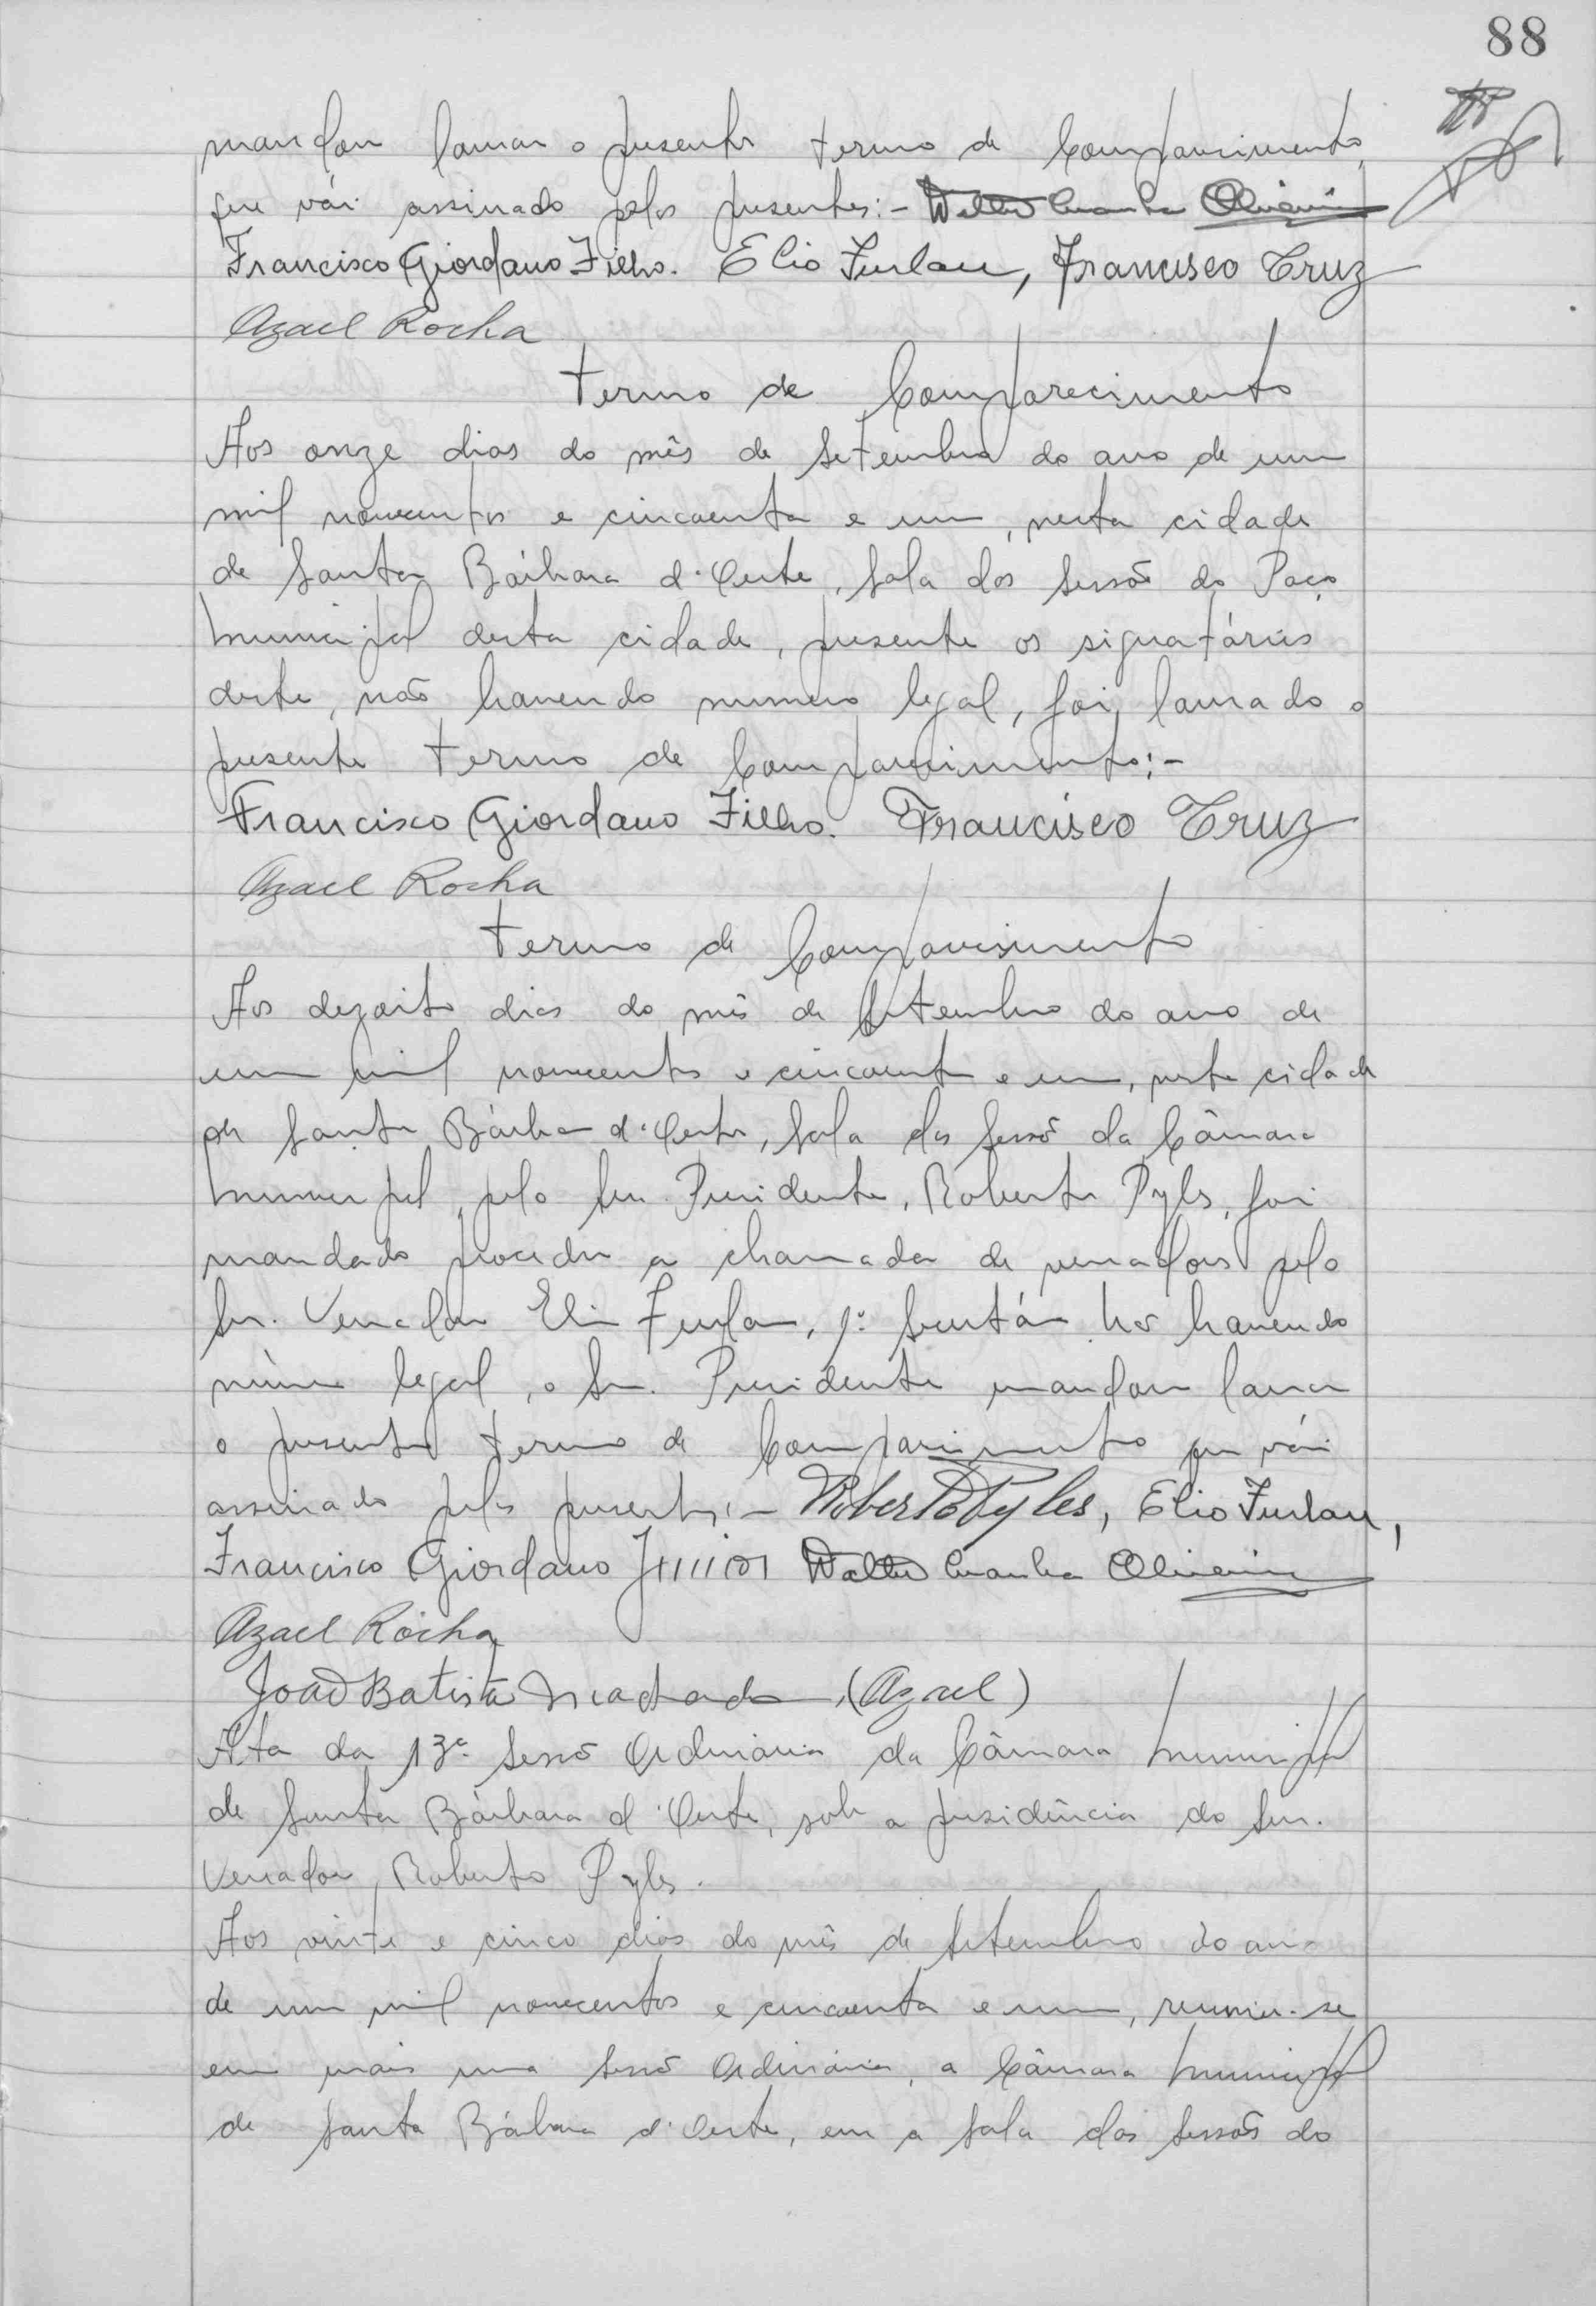 88
mandou lavrar o presente termo de Comparecimento,
que vái assinado pelos presentes:- Walter Oliveira
Francisco Giordano Filho. Elio Furlan, Francisco Cruz
Azael Rocha
Termo de Comparecimento
Aos onze dias do mês de Setembro do ano de um
mil novecentos e cincoenta e um, nesta cidade
de Santa Bárbara d'Oeste, Sala das Sessões do Paço
Municipal desta cidade, presente os signatários
deste, não havendo numero legal, foi lavrado o
presente termo de Comparecimento:-
Francisco Giordano Filho. Francisco Cruz
Azael Rocha
Termo de Comparecimento
Aos dezoito dias do mês de Setembro do ano de
um mil novecentos e cincoenta e um, nesta cidade
de Santa Bárbara d'Oeste, Sala das Sessões da Câmara
Municipal, pelo Snr. Presidente, Roberto Pyles, foi
mandado proceder a chamada de vereadores pelo
Snr. Vereador Elio Furlan, 1º Secretário. Não havendo
número legal, o Snr. Presidente mandou lavrar
o presente termo de Comparecimento que vái
assinado pelos presentes:- Roberto Pyles, Elio Furlan,
Francisco Giordano Walter Oliveira
Azael Rocha
João Batista Machado, (Azael)
Ata da 13ª Sessão Ordinária da Câmara Municipal
de Santa Bárbara d'Oeste, sob a presidência do Snr.
Vereador Roberto Pyles.
Aos vinte e cinco dias do mês de Setembro do ano
de um mil novecentos e cincoenta e um, reuniu-se
em mais uma Sessão Ordinária, a Câmara Municipal
de Santa Bárbara d'Oeste, em a Sala das Sessões do